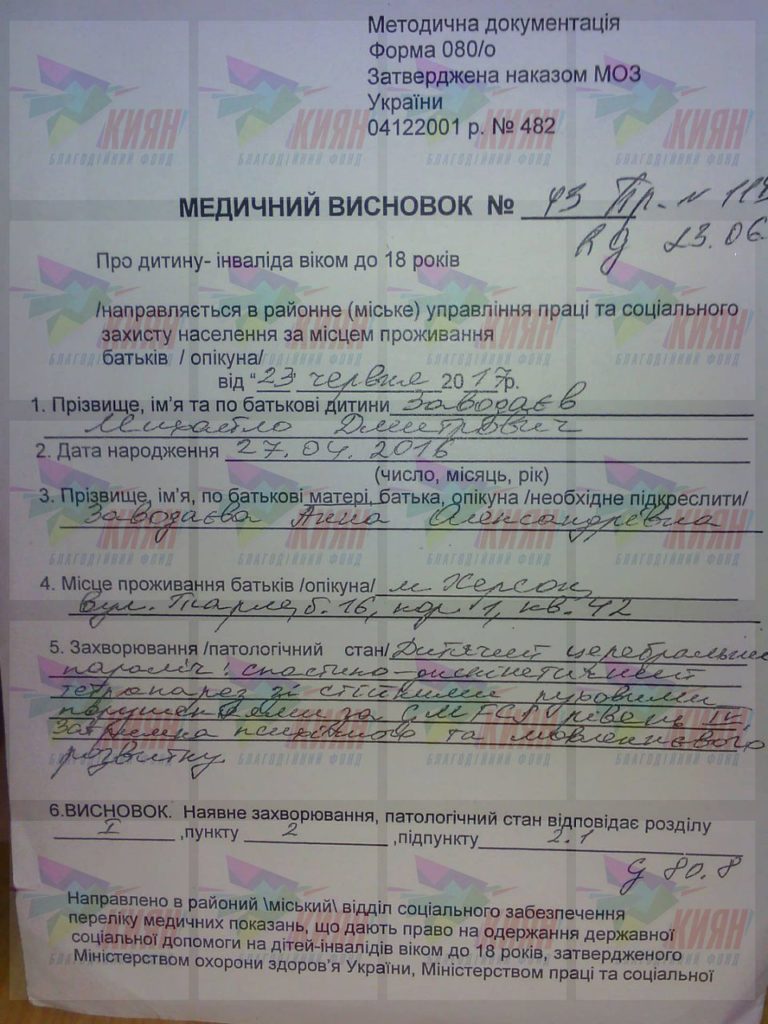 Методична документація
Форма 080/о
Затверджена наказом МОЗ
України
04122001 р. № 482
МЕДИЧНИЙ ВИСНОВОК № 43 Пр. N
23.06.
Про дитину- інваліда віком до 18 років
/направляється в районне (міське) управління праці та соціального
захисту населення за місцем проживання
батьків / опікуна/
від "23 червня 2017р.
1. Прізвище, ім'я та по батькові дитини Заводаєв
Михайло Дмитрович
2. Дата народження 27.04.2016
(число, місяць, рік)
3. Прізвище, ім'я, по батькові матері, батька, опікуна /необхідне підкреслити/
Заводаєва Анна Олександрівна
4. Місце проживання батьків /опікуна/ м Херсон,
вул. б. 16, кор. 1, кв. 42
5. Захворювання /патологічний стан/ Дитячий церебральний
параліч: спастико-дискінетичний
тетрапарез зі стійкими руховими
порушеннями за GMFCS рівень IV,
Затримка психічного та мовленнєвого
розвитку.
6.ВИСНОВОК. Наявне захворювання, патологічний стан відповідає розділу
I ,пункту 2 ,підпункту 2.1
G 80.8
Направлено в районий \міський\ відділ соціального забезпечення
переліку медичних показань, що дають право на одержання державної
соціальної допомоги на дітей-інвалідів віком до 18 років, затвердженого
Міністерством охорони здоров'я України, Міністерством праці та соціальної
КИЯН
БЛАГОДІЙНИЙ ФОНД